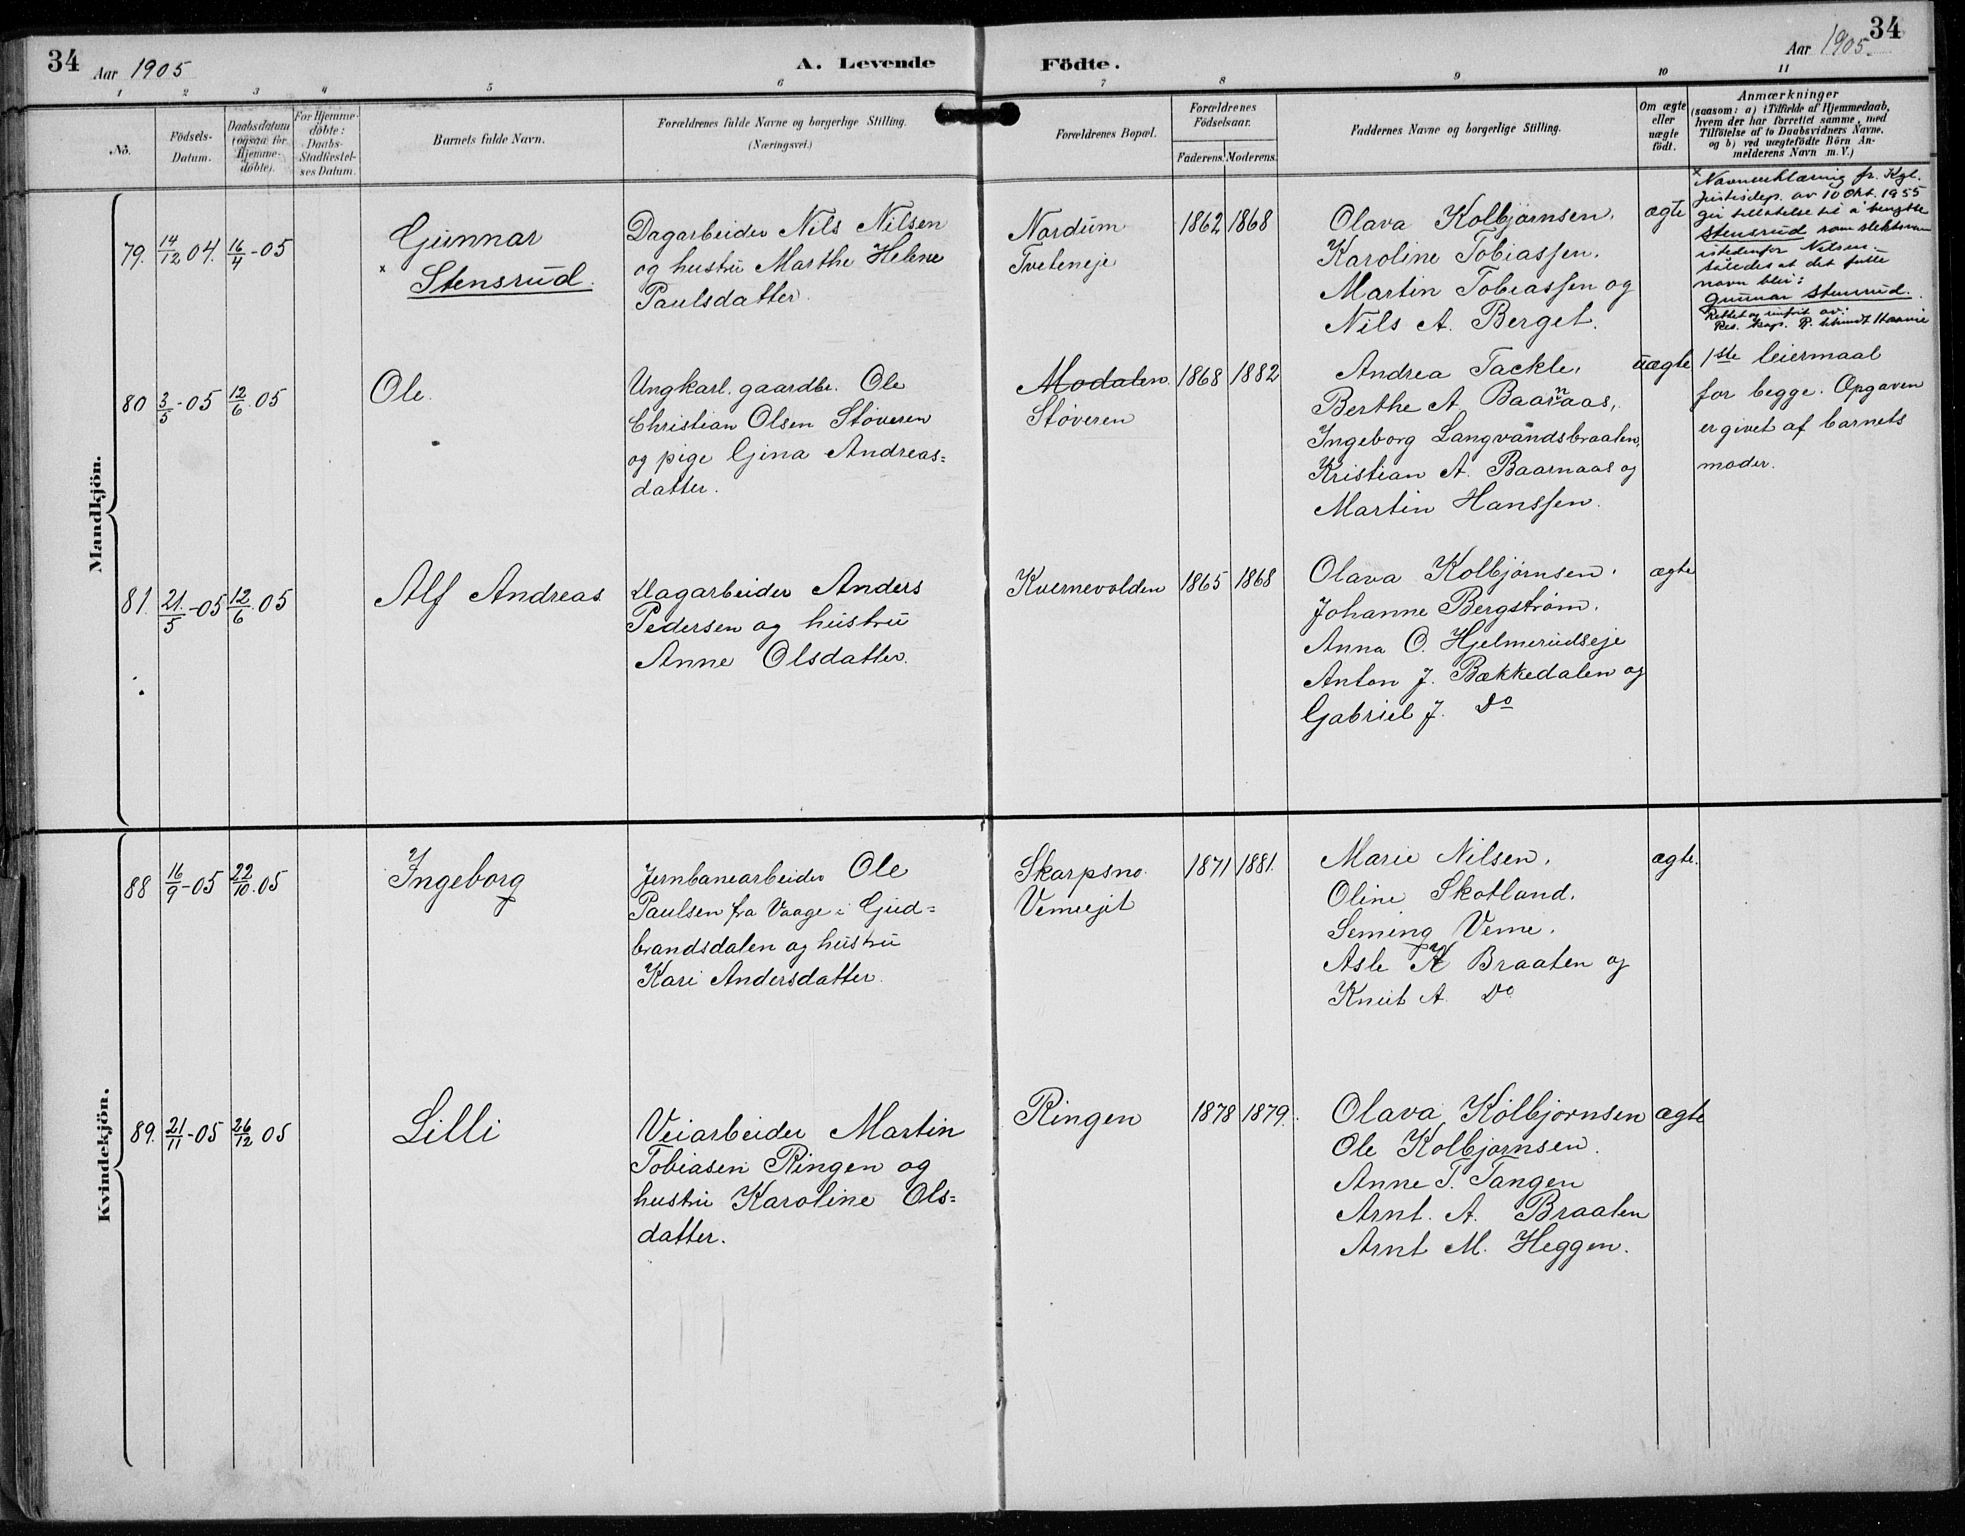 34
Aar 1905
A. Levende
Födte.
Aar 1905.
34
1 2 3 4 5 6 7 8 9 10 11
No.
Födsels-
Datum.
Daabsdatum
(ogsaa for
Hjemme-
døbte).
For Hjemme-
döbte:
Daabs-
Stadfæstel-
ses Datum.
Barnets fulde Navn.
Forældrenes fulde Navne og borgerlige Stilling.
(Næringsvei.)
Forældrenes Bopæl.
Forældrenes
Födselsaar.
Faderens. Moderens.
Faddernes Navne og borgerlige Stilling.
Om ægte
eller
uægte
født.
Anmærkninger
(saasom: a) i Tilfælde af Hjemmedaab,
hvem der har forrettet samme, med
Tilföielse af to Daabsvidners Navne.
og b) ved uægtefödte Börn An-
melderens Navn m. V.)
Mandkjön.
79. 14/12 04. 16/4-05
Gunnar
x Stensrud.
Dagarbeider Nils Nilsen
og hustru Marthe Helene
Paulsdatter.
Nordum
Tveteneje
1862 1868
Olava Kolbjørnsen.
Karoline Tobiassen.
Martin Tobiassen og
Nils A. Berget.
ægte
x Navneerklæring fr. Kgl.
Justisdep. av 10 Okt. 1955
gir tillatelse til å benytte
Stensrud som slektsnavn
istedenfor Nilsen.
således at det fulle
navn blir:
Gunnar Stensrud.
Rettet og innført av:
Res. kap.
80 3/5-05 12/6.05
Ole.
Ungkarl. gaardbr. Ole
Christian Olsen Støveren
og pige Gina Andreas=
datter.
Modalen
Støveren
1868 1882
Andrea Tackle,
Berthe A. Baarnaas,
Ingeborg Langvandsbraaten,
Kristian A. Baarnaas og
Martin Hanssen.
uægte
1ste leiermaal
for begge. Opgaven
er givet af barnets
moder.
81. 21/5-05 12/6.05
Alf Andreas.
Dagarbeider Anders
Pedersen og hustru
Anne Olsdatter.
Kvernevolden
1865 1868
Olava Kolbjørnsen.
Johanne Bergstrøm.
Anna O. Hjelmerudseje
Anton J. Bækkedalen og
Gabriel J. Do
ægte
Kvindekjön.
88 16/9-05 22/10.05
Ingeborg
Jernbanearbeider Ole
Paulsen fra Vaage i Gud=
brandsdalen og hustru
Kari Andersdatter.
Skarpsno
Vemeejet
1871 1881.
Marie Nilsen.
Oline Skotland.
Seming Veme.
Asle K Braaten og
Knut A. Do
ægte.
89. 21/11-05 26/12 05
Lilli
Veiarbeider Martin
Tobiasen Ringen og
hustru Karoline Ols=
datter.
Ringen
1878 1879.
Olava Kolbjørnsen
Ole Kolbjørnsen.
Anne T. Tangen
Arnt. A. Braaten
Arnt M. Heggen.
ægte